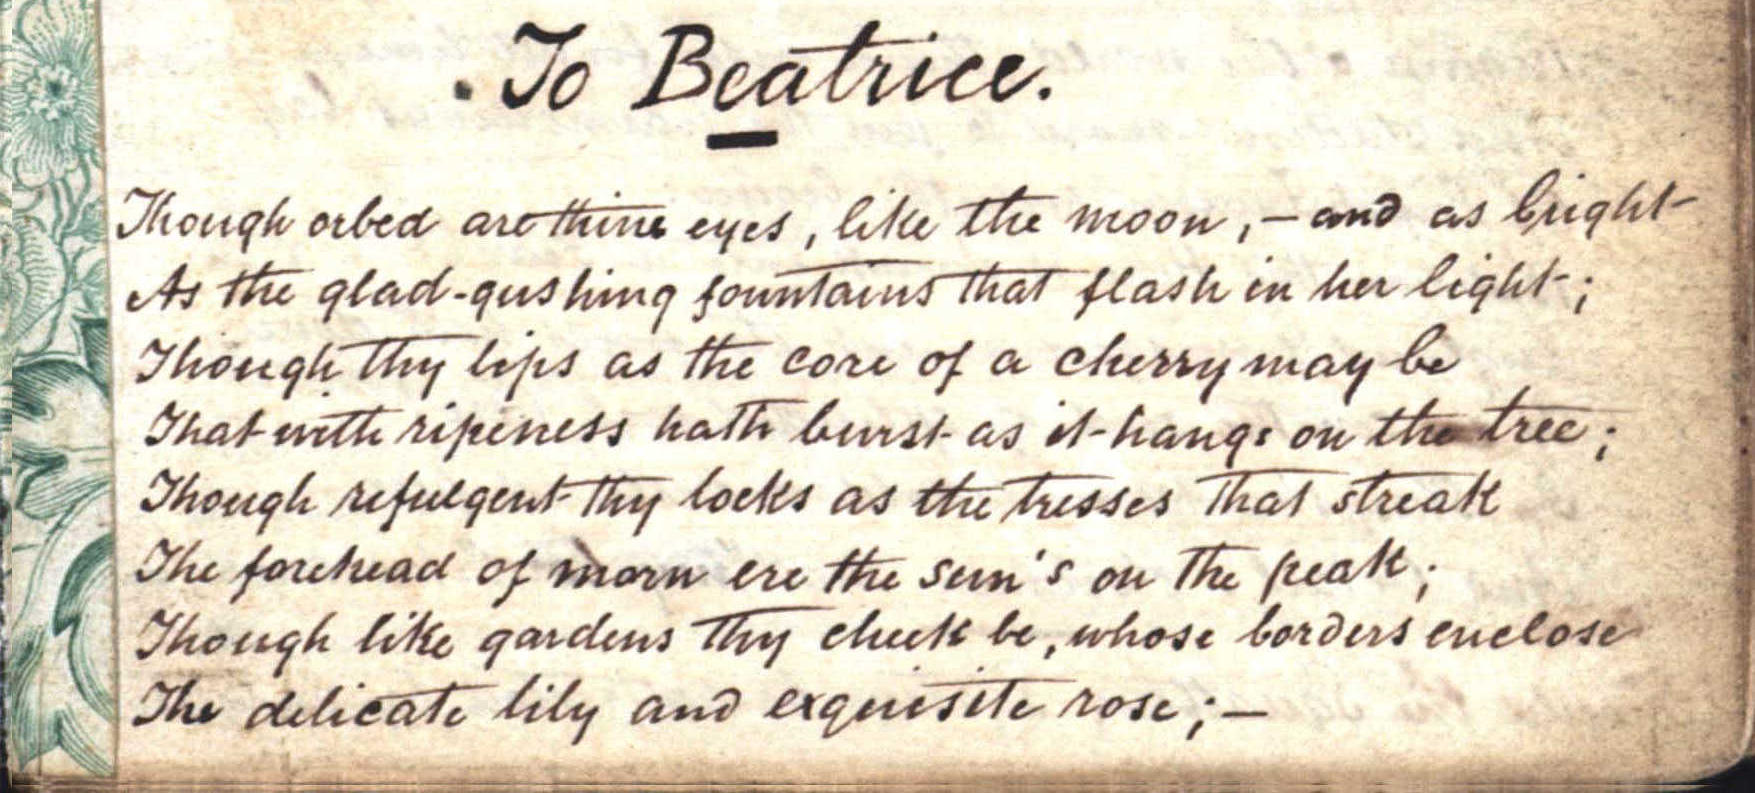 To Beatrice.
Though orbed are thine eyes, like the moon, — and as bright
As the glad-gushing fountains that flash in her light;
Though thy lips as the core of a cherry may be
That with ripeness hath burst as it hangs on the tree;
Though refulgent thy locks as the tresses that streak
The forehead of morn ere the sun's on the peak;
Though like gardens thy cheek be, whose borders enclose
The delicate lily and exquisite rose; —